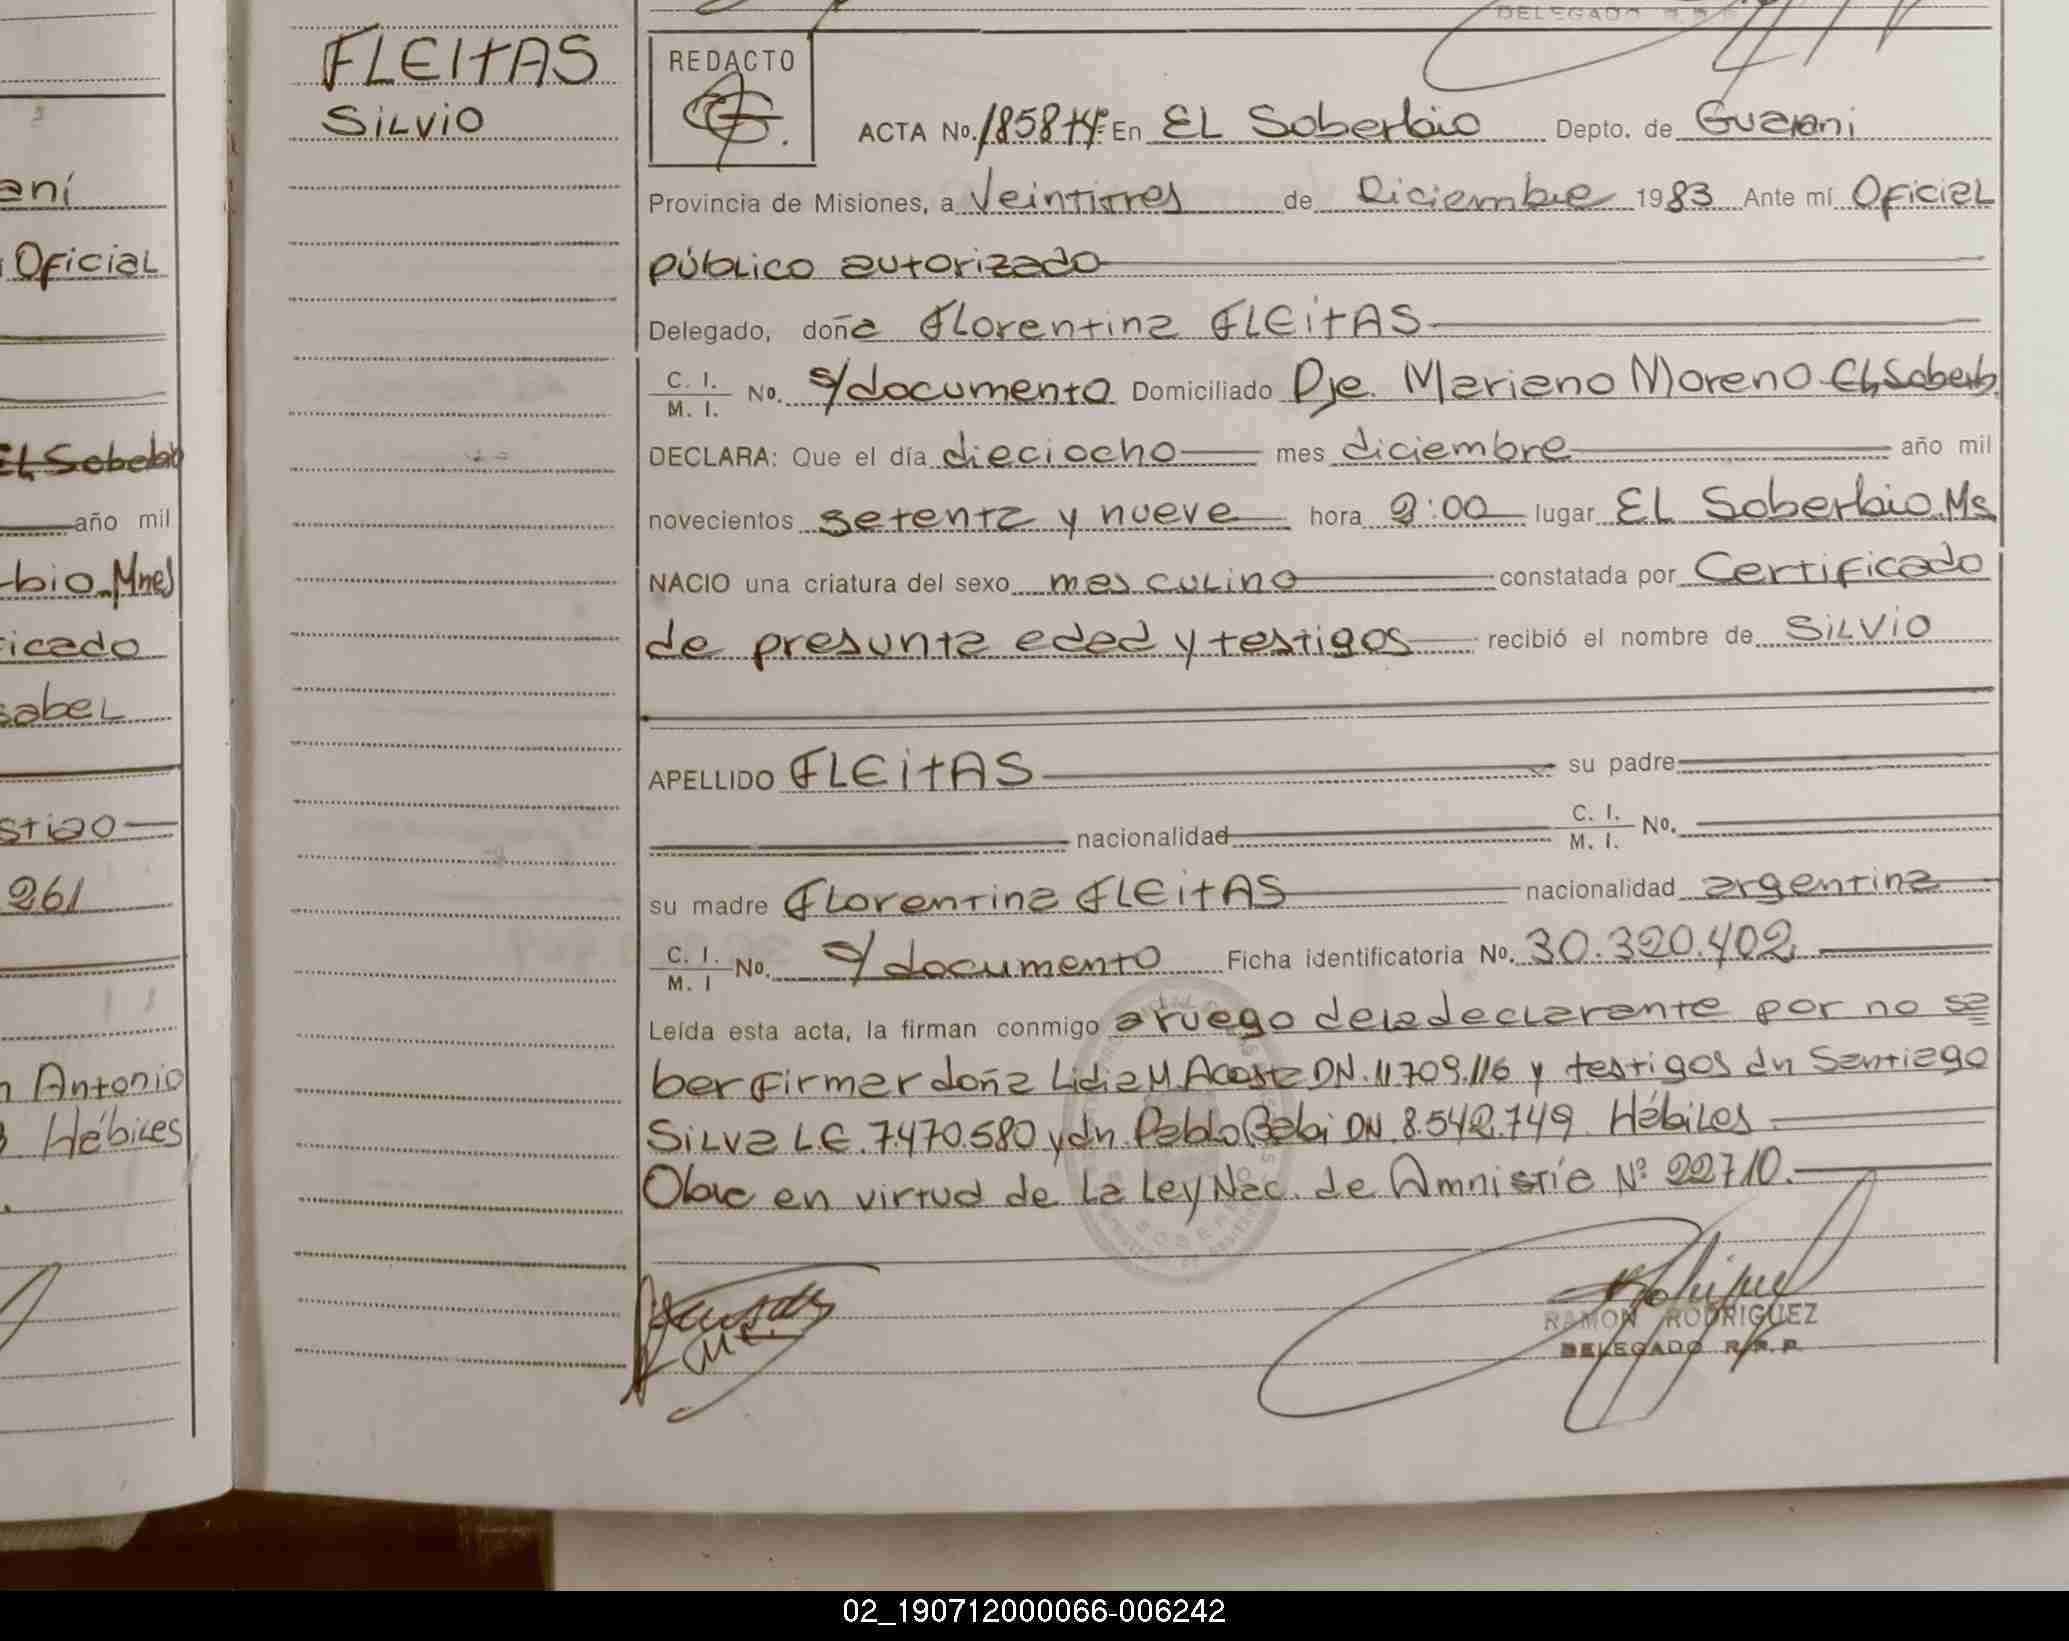 DELEGADO R.R.P.
FLEITAS
SILVIO
REDACTO
ACTA No. 1858 Tº 4º En EL Soberbio Depto. de Guarani
Provincia de Misiones, a Veintitres de Diciembre 1983 Ante mí Oficial
público autorizado
Delegado, doña Florentina FLEITAS
C. I. / M. I. No. s/documento Domiciliado Pje. Mariano Moreno-EL Soberb.
DECLARA: Que el día dieciocho mes diciembre año mil
novecientos setenta y nueve hora 9:00 lugar EL Soberbio. Ms
NACIO una criatura del sexo masculino constatada por Certificado
de presunta edad y testigos recibió el nombre de SILVIO
APELLIDO FLEITAS su padre
nacionalidad C. I. / M. I. No.
su madre Florentina FLEITAS nacionalidad argentina
C. I. / M. I No. s/documento Ficha identificatoria No. 30.320.402
Leída esta acta, la firman conmigo a ruego de la declarante por no sa
ber firmar doña Lidia M. Acosta DN. 11.709.116 y testigos dn Santiago
Silva LE. 7.470.580 y dn. Pablo Bebi DN. 8.542.749. Hábiles
Obre en virtud de la Ley Nac. de Amnistía Nº 22710.
RAMON RODRIGUEZ
DELEGADO R.R.P.
aní
Oficial
EL Soberbio
año mil
bio. Mnes
icado
sabel
stigo
261
n Antonio
Hábiles
02_190712000066-006242